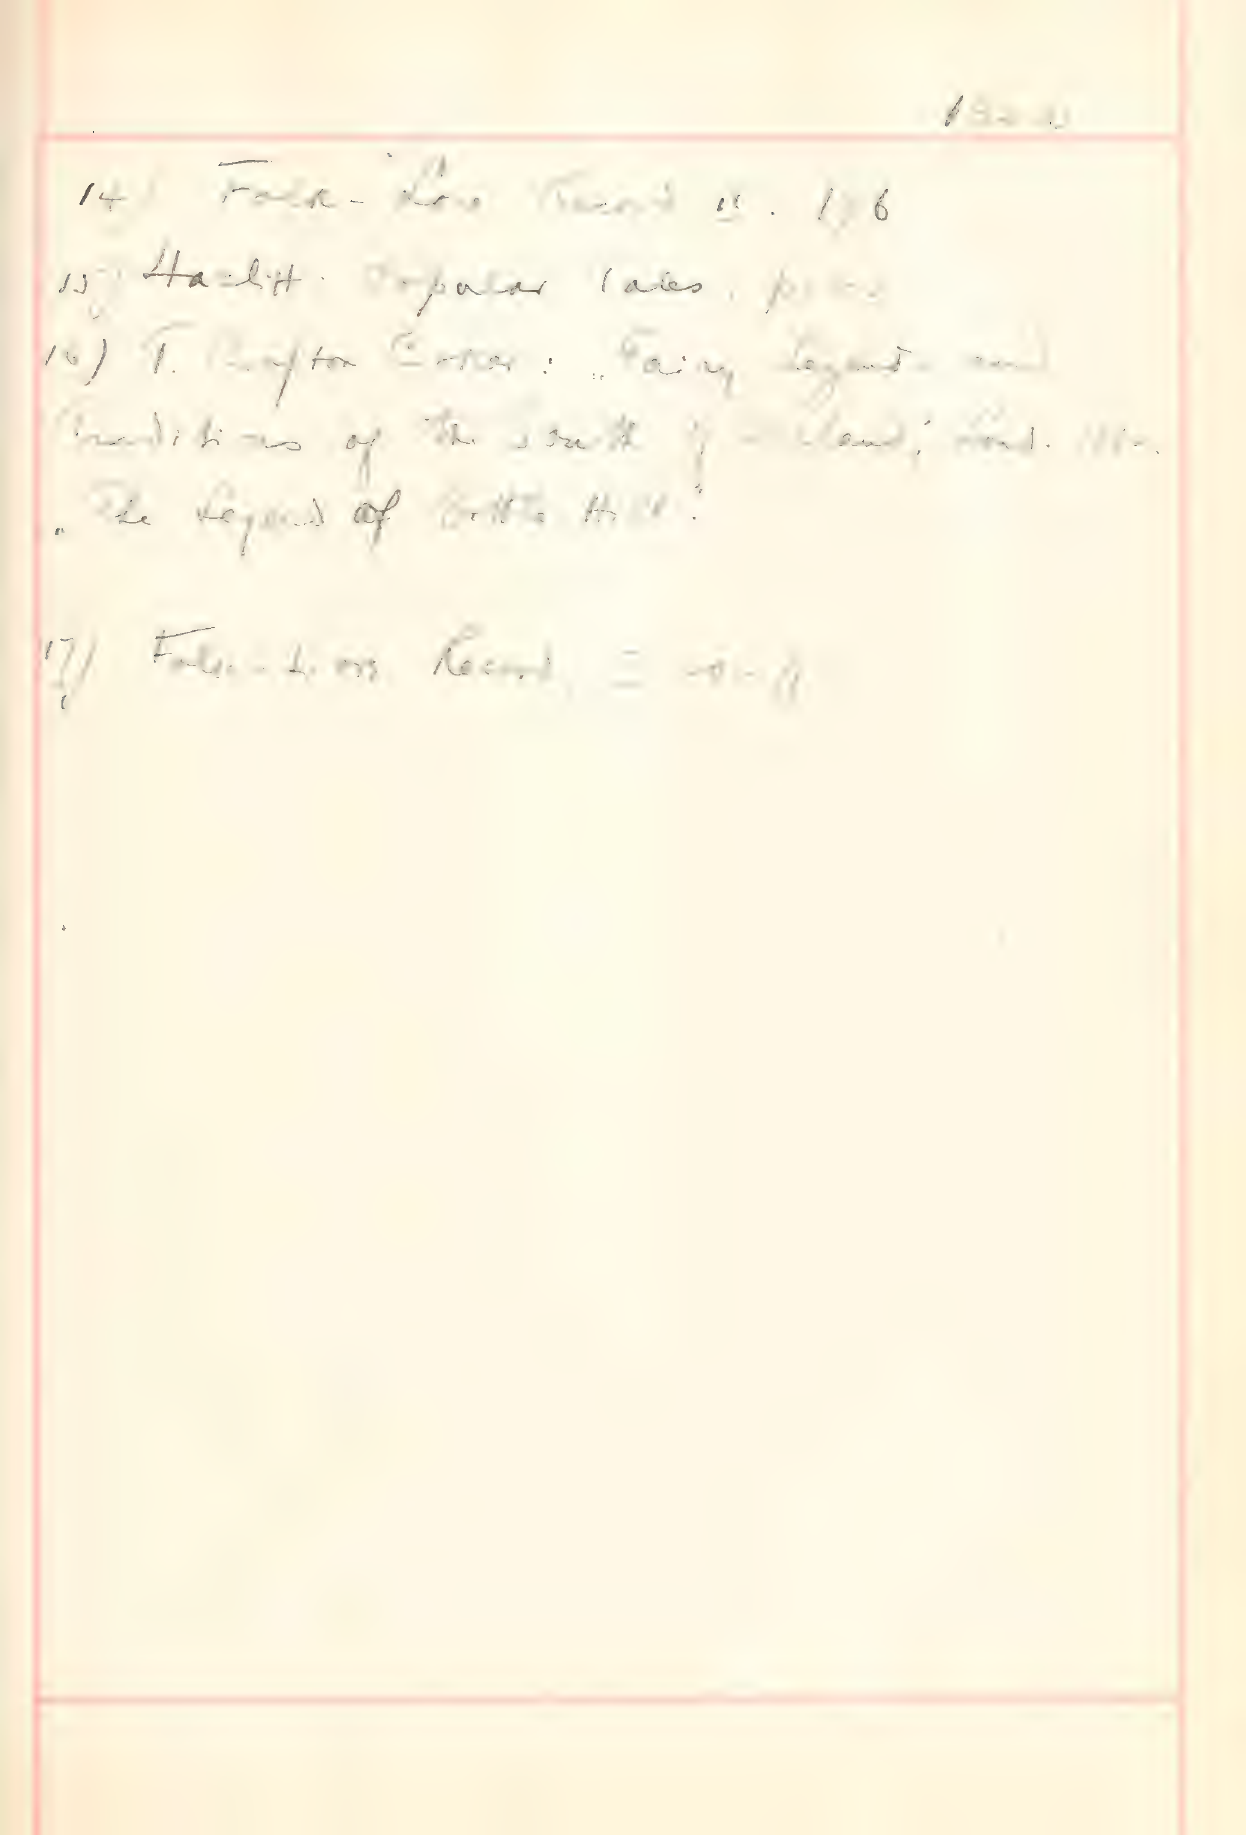 14) Folk-Lore Record II. 176
15) Hazlitt. Popular Tales, p.
16) T. Crofton Croker: „Fairy Legends and
Traditions of the South of Ireland," Lond.
„The Legend of Bottle Hill."
17) Folk-Lore Record,